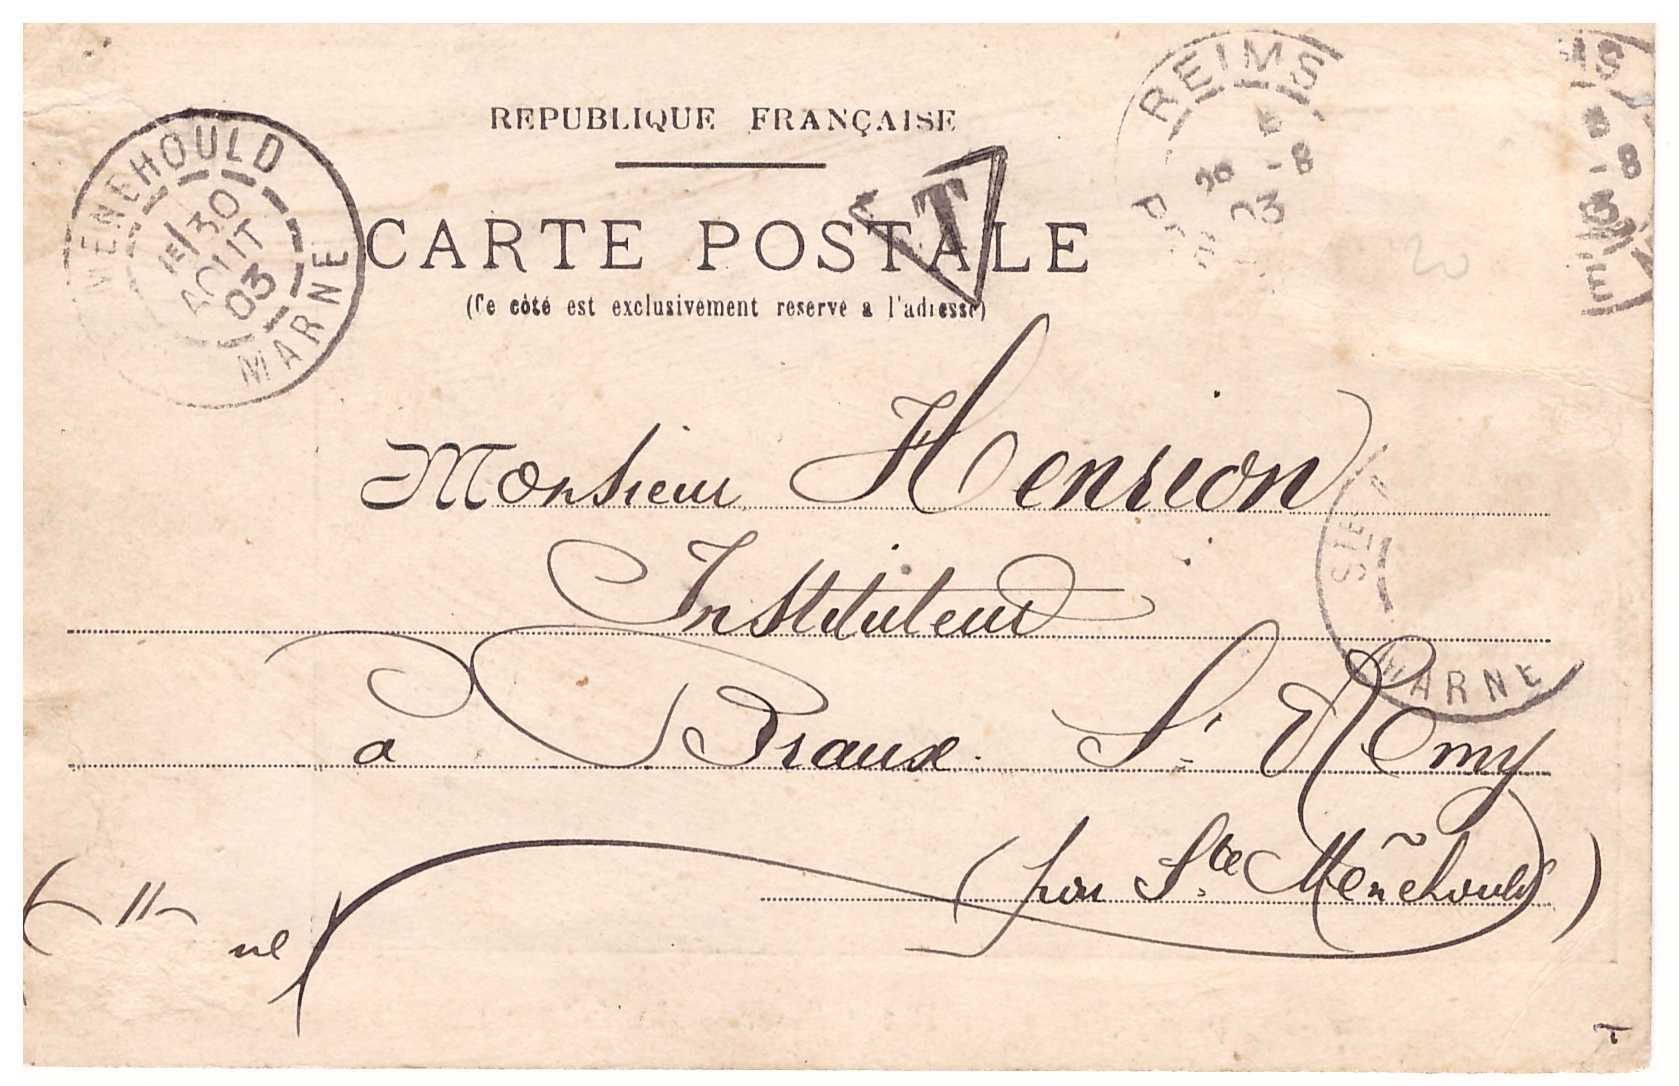 REPUBLIQUE FRANÇAISE
CARTE POSTALE
(Ce côté est exclusivement reservé a l'adresse)
T
MENEHOULD
30
AOUT
03
MARNE
REIMS
03
MS
Monsieur Henrion
Instituteur
STE
MARNE
à Braux St Remy
(par Ste Menehould)
T